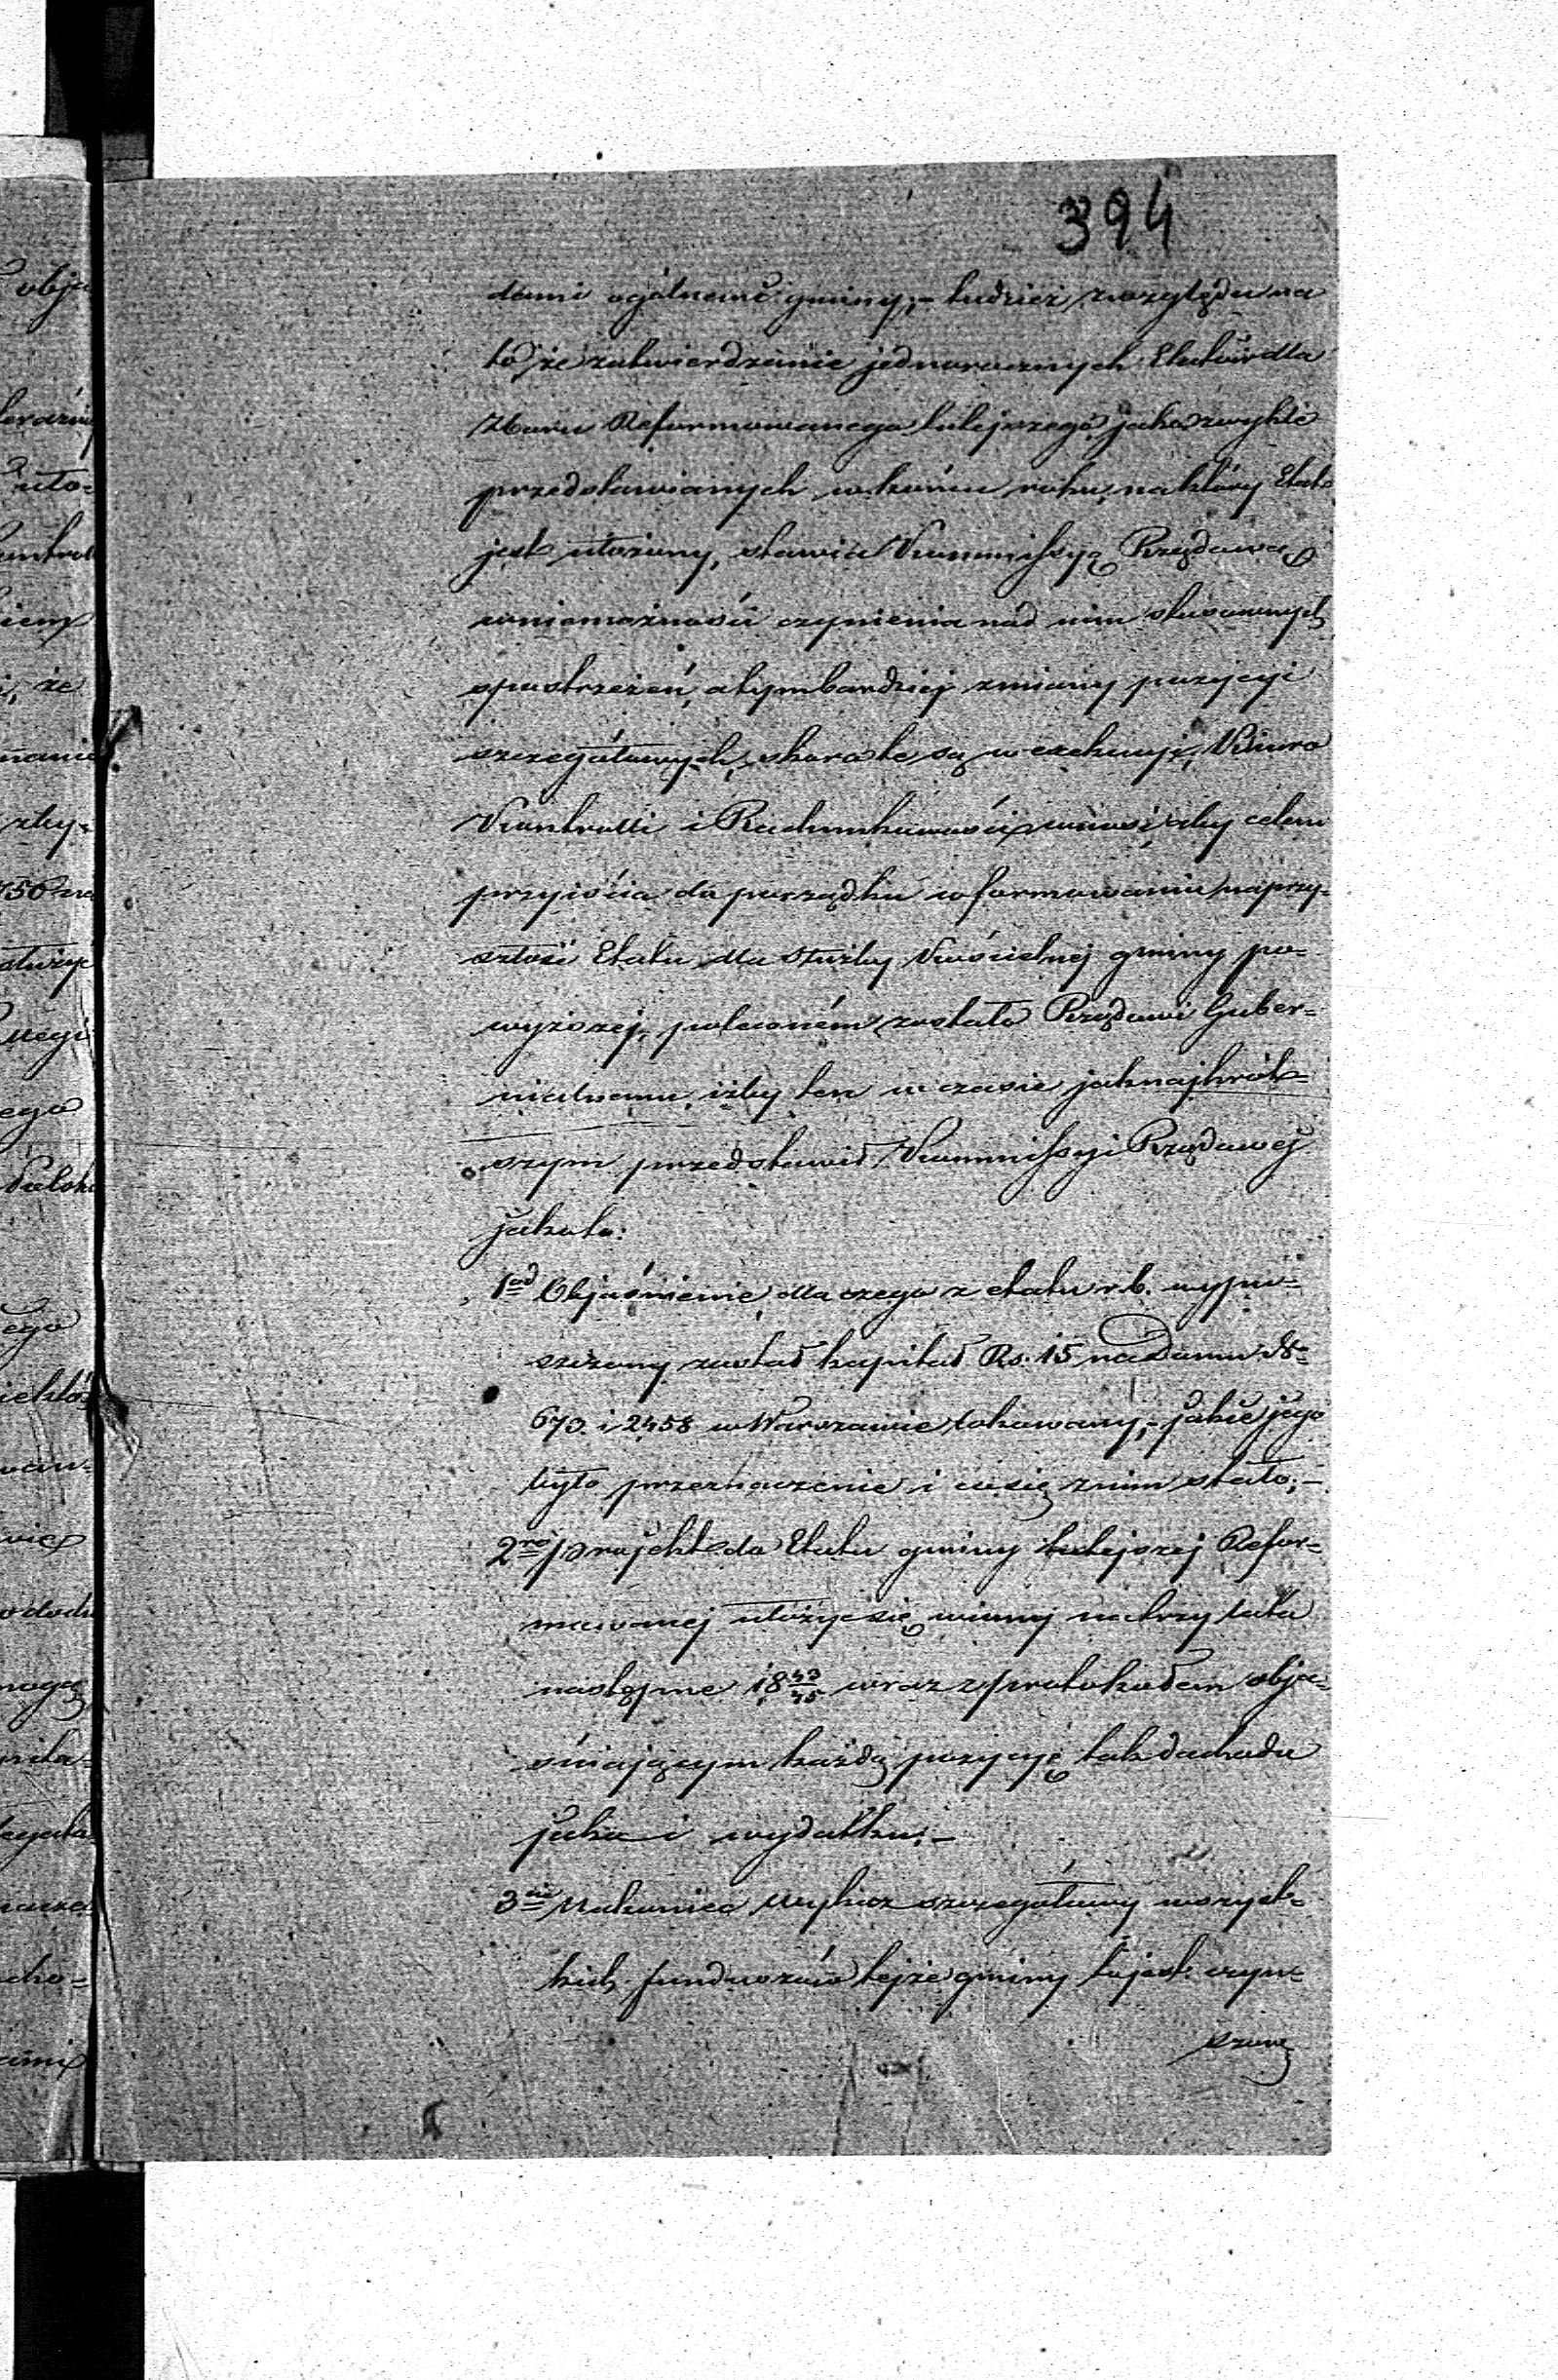 394
dami ogólnemi gminy;- tudzież zwzględu na
to, że zatwierdzenie jednorocznych Etatów dla
Zboru Reformowanego tutejszego, jako zwykle
przedstawianych w końcu roku, na który Etat
jest ułożony, stawia Kommissyą Rządową
w niemożności czynienia nad nim stosownych
spostrzeżeń, a tym bardziej zmiany pozycyi
szczegółowych, skoro te są w exekucyi, Biuro
Kontrolli i Rachunkowości wnosi, aby celem
przyiścia do porządku w formowaniu na przy-
szłość Etatu dla Służby Kościelnej gminy po-
wyższej, poleconém zostało Rządowi Guber-
nialnemu, iżby ten w czasie jaknajkrót-
szym przedstawił Kommissyi Rządowej
jakoto:
1od Objaśnienie, dla czego z etatu r.b. wypu-
szczony został kapitał Rs. 15 na Domu No
673. i 2458 w Warszawie lokowany;- jakie jego
było przeznaczenie i co się z nim stało;-
2re projekt do Etatu gminy tutejszej Refor-
mowanej ułożyć się winnej na trzy lata
następne 18 43/45 wraz z protokółem obja-
śniającym każdą pozycyę tak dochodu
jako i wydatku;-
3cie Nakoniec wykaz szczegółowy wszyst-
kich funduszów tejże gminy to jest: czyn-
szowe
obja
uło-
że
zby-
ego
ego
wie
cho-